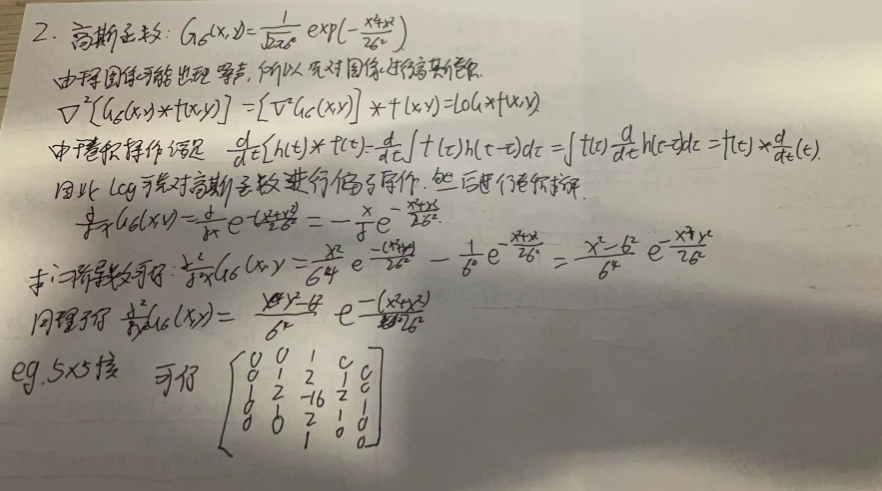 2. 高斯函数: G₆(x,y)=1/√2πσ² exp(-x²+y²/2σ²)
由于图像可能出现噪声,所以先对图像进行高斯滤波.
∇²[G₆(x,y)*f(x,y)]=[∇²G₆(x,y)]*f(x,y)=LoG*f(x,y)
由于卷积操作满足 d/dt[h(t)*f(t)=d/dt∫f(τ)h(t-τ)dτ=∫f(τ)d/dt h(t-τ)dτ=f(t)*d/dt(t).
因此 Log可先对高斯函数进行偏导操作.然后进行卷积
∂/∂x G₆(x,y)=∂/∂x e^-(x²+y²)/2σ²=-x/σ e^-x²+y²/2σ².
求二阶导数可得: ∂²/∂²x G₆(x,y=x²/σ⁴ e^-(x²+y²)/2σ² - 1/σ² e^-x²+y²/2σ²=x²-σ²/σ⁴ e^-x²+y²/2σ²
同理可得 G₆(x,y)=y²-σ²/σ⁴ e^-(x²+y²)/2σ²
eg.5×5核 可得
0 0 1 0 0
0 1 2 1 0
1 2 -16 2 1
0 0 2 1 0
1 0 0